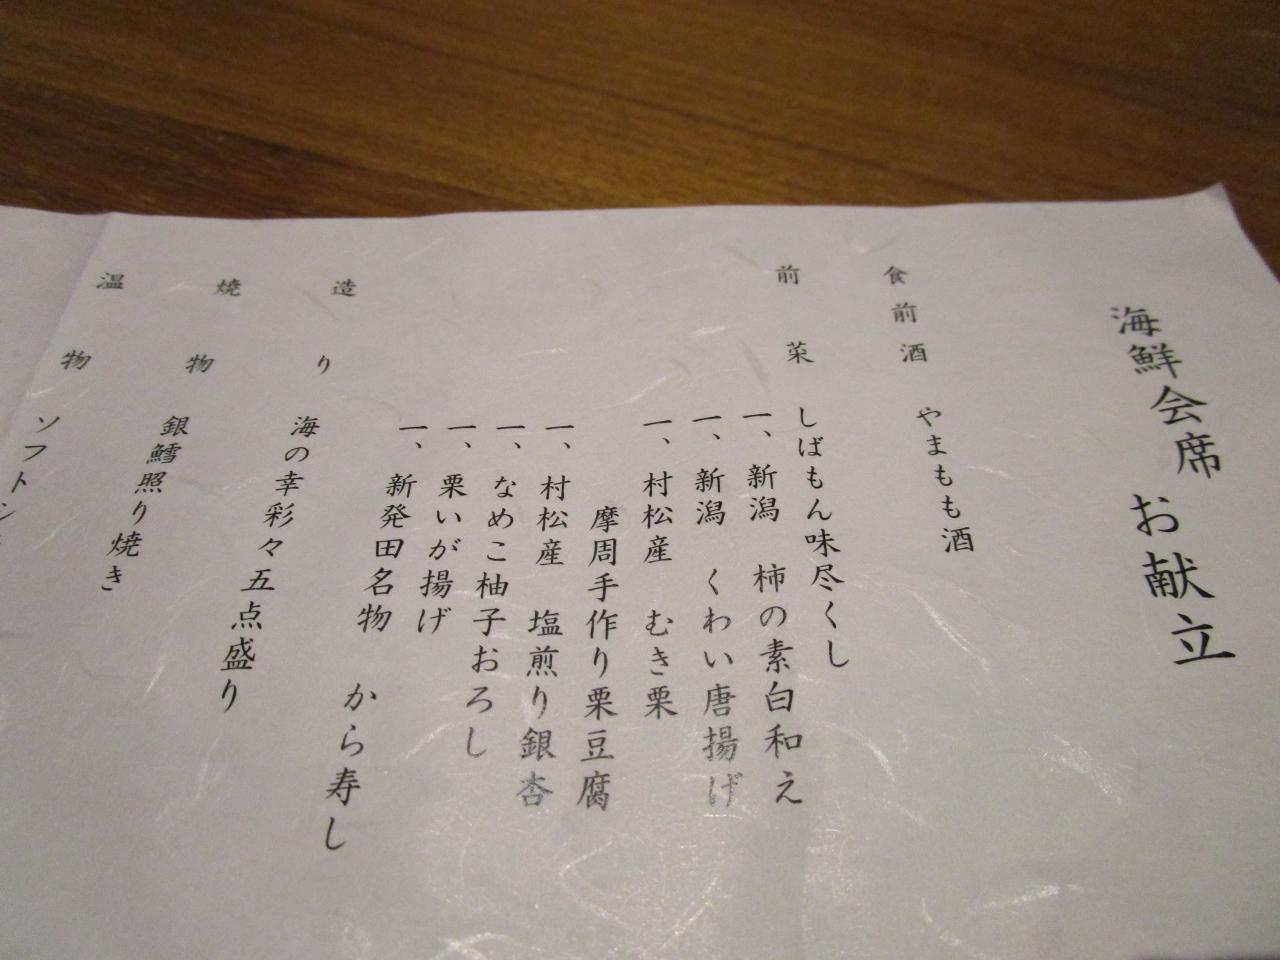 海鮮会席 お献立
食前酒 やまもも酒
前菜 しばもん味尽くし
一、新潟 柿の素白和え
一、新潟 くわい唐揚げ
一、村松産 むき栗
摩周手作り栗豆腐
一、村松産 塩煎り銀杏
一、なめこ柚子おろし
一、栗いが揚げ
一、新発田名物 から寿し
造り 海の幸彩々五点盛り
焼物 銀鱈照り焼き
温物 ソフト